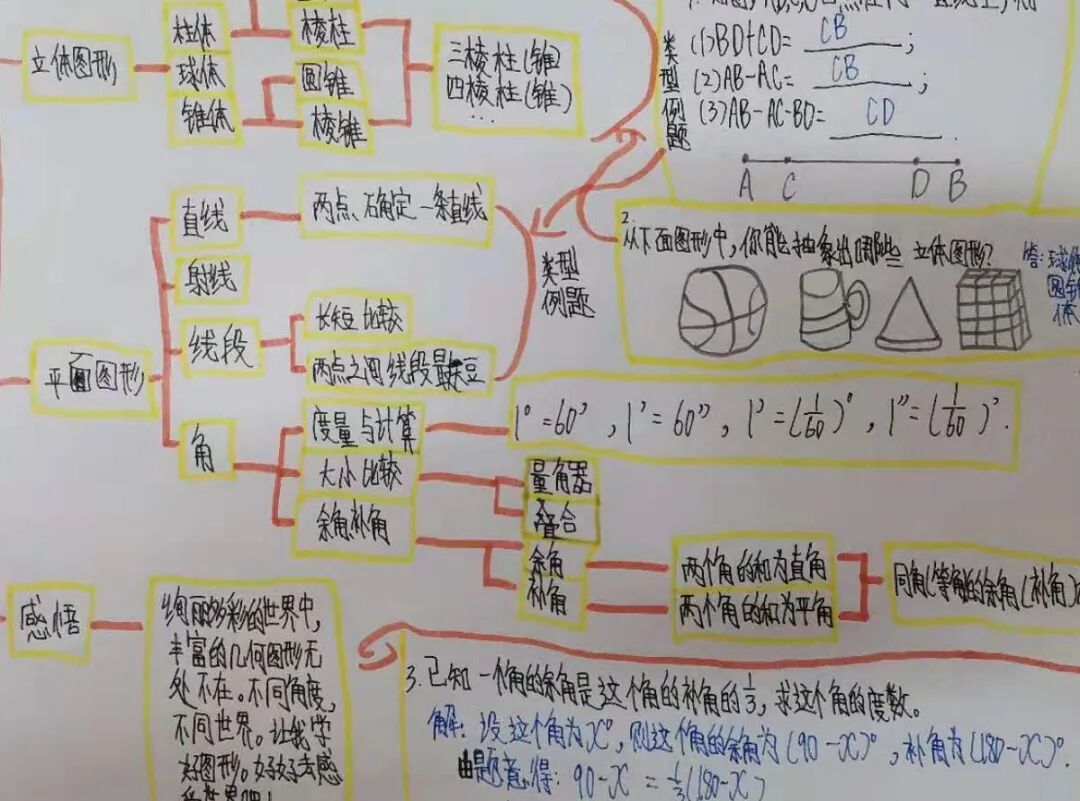 立体图形
柱体
球体
锥体
棱柱
圆锥
棱锥
三棱柱(锥)
四棱柱(锥)
...
类型例题
(1)BD+CD= CB ;
(2)AB-AC= CB ;
(3)AB-AC-BD= CD .
A C D B
平面图形
直线
射线
线段
角
两点确定一条直线
长短比较
两点之间线段最短
类型
例题
2.
从下面图形中,你能抽象出哪些立体图形?
答:球体
圆锥
体
度量与计算
大小比较
余角补角
1°=60′,1′=60″,1′=(1/60)°,1″=(1/60)′.
量角器
叠合
余角
补角
两个角的和为直角
两个角的和为平角
同角(等角)的余角(补角)
感悟
绚丽多彩的世界中,
丰富的几何图形无
处不在。不同角度,
不同世界。让我学
好图形。好好去感
3.已知一个角的余角是这个角的补角的1/3,求这个角的度数。
解:设这个角为x°,则这个角的余角为(90-x)°,补角为(180-x)°.
由题意得:90-x=1/3(180-x)